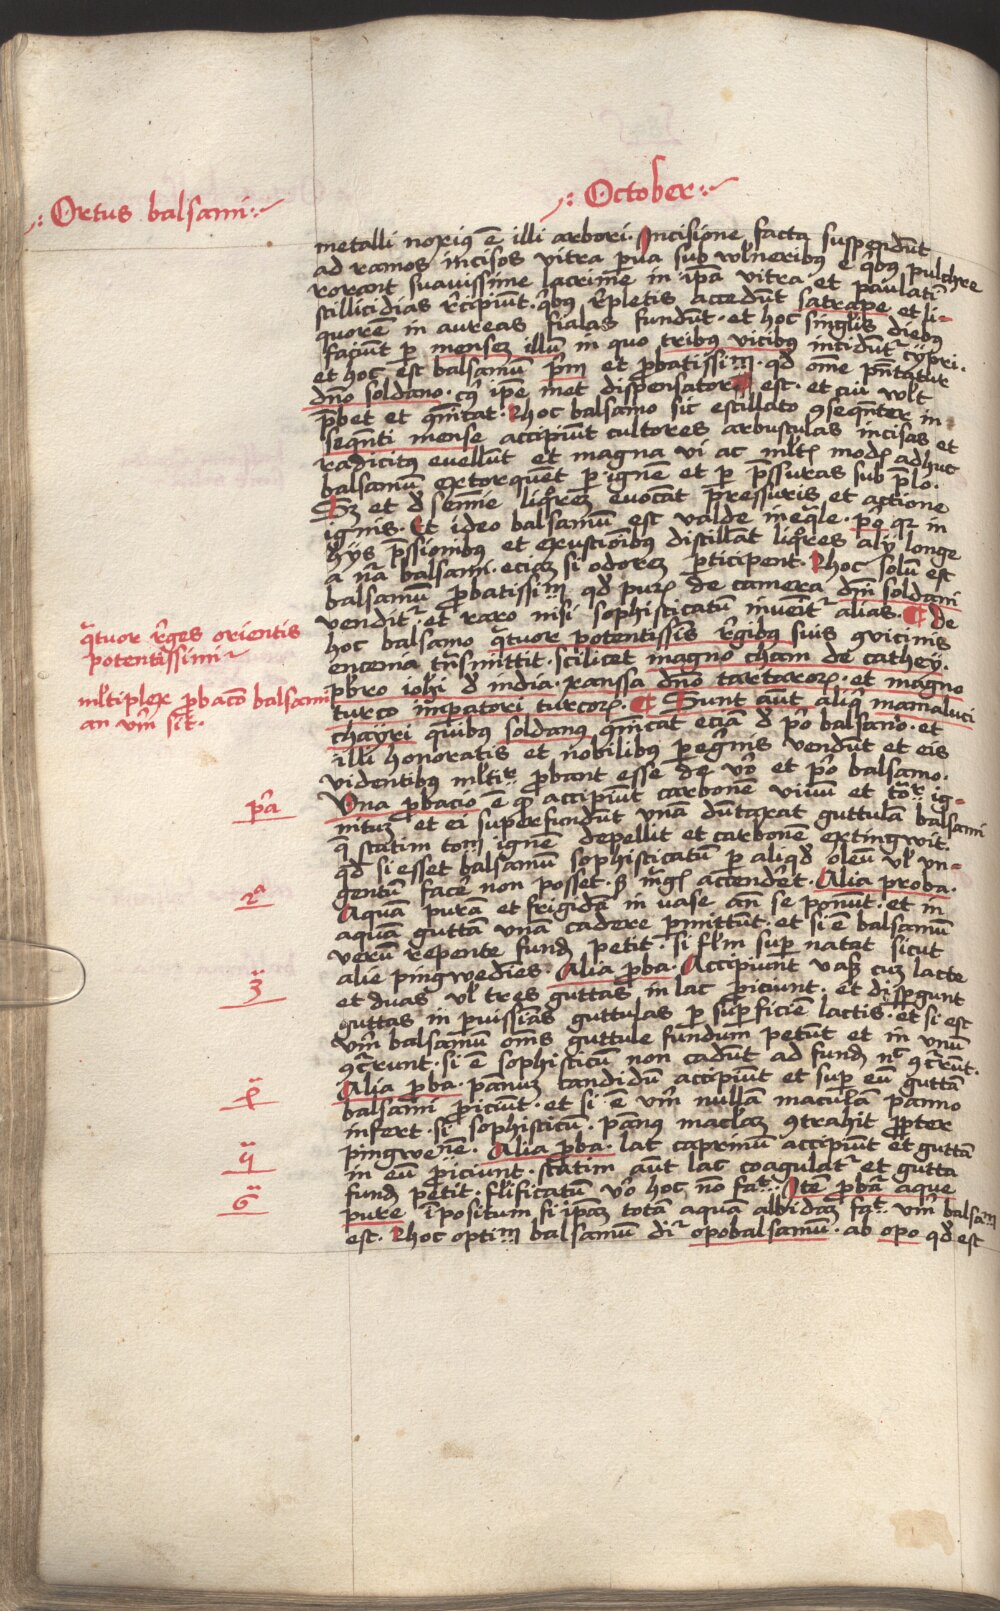 Ortus balsami
October
metalli noxiꝰ ē illi arbori. Incisione facta suspendūt
ad ramos incisos vitra pͣua sub wlneribꝰ e qͥbꝰ pulchre
rorant suavissime lacrime in ip̄a vitra et paulatī
stillicidias r̄cipiūt. qͥbꝰ r̄pletis accedūt satrape et li-
quorē in aureas fialas fundūt. et hoc singlis diebꝰ
faciūt ꝑ mensem illū in quo tribꝰ vicibꝰ incidūtͬ cypri.
et hoc est balsamū pͥm et ꝓbatissimū. qd̄ om̄e pn̄tatur
dn̄o soldano. cꝰ ip̄e met dispensator est. et cui wlt
p̄bet et cōmunicat. hoc balsamo sic estillato ꝯseqn̄ter in
seqn̄ti mense accipiūt cultores arbusculas incisas et
radicitꝰ euellūt et magna vi ac ml̄tꝭ modꝭ adhuc
balsamū extorquēt ꝑ ignē et ꝑ p̄ssuras sub p̄lo.
Sꝫ et liqͦrem euocat pressuris et actione
ignis. Et ideo balsamū est valde ineq̄le. pͦ qꝛ in
hijs p̄ssionibꝰ et exustioībꝰ distillāt liqͦres alij longe
a nā balsami. eciam si odorem ꝑticipent. hoc solū est
balsamū ꝓbatissimū qd̄ purū de camera dn̄i soldani
venditͬ. et raro nisi sophisticatū inuenitͬ alias. ¶ De
hoc balsamo qͣtuor potentissīs r̄gibꝰ suis ꝯvicinis
encenia trn̄smittit. scilicet magno cham de cathey.
pb̄ro ioh̄i d̄ india. xanssa dn̄o tartarorꝝ. et magno
turco imꝑatori turcorꝝ. ¶ Sunt aūt aliqͥ mamaluci
chayri quibus soldanus cōicat eciā d̄ pͦo balsamo. et
illi honoratis et nobilibꝰ ꝑegͥnis vendūt et eis
videntibꝰ ml̄titꝑ ꝓbant esse de v̄o et pͦo balsamo.
Una ꝓbacio ē qͩ accipiūt carbonē viuū et totͬ ig-
nitum et ei superfundūt vnā dūtaxat guttulā balsami
q̄ statim totū ignē depellit et carbonē extingwit.
qd̄ si esset balsamū sophisticatū ꝑ aliqd̄ oleū vl̄ vn-
gentū facere non posset. sꝫ mͣgꝭ accenderet. Alia proba.
Aquā purā et frigidā in vase an̄ se ponūt. et in
aquā guttā vnā cadere ꝑmittūt. et si ē balsamū
verū repente fundū petit. si fl̄m suꝑ natat sicut
alie pingwedīes. Alia ꝓba. Accipiunt vas cum lacte
et duas vl̄ tres guttas in lac ꝓiciunt. et disꝑgunt
guttas in ꝑuissīas guttulas ꝑ suꝑficiē lactis. et si est
vīm balsamū om̄s guttule fundum petūt et in vnū
ꝯcͬrunt. si ē sophisticū non cadūt ad fundū nͨ ꝯcͬrūt.
Alia ꝓba. pannum candidū accipiūt et suꝑ eū guttā
balsami ꝓiciūt. et si ē vīm nullā maculā panno
infert. si sophisticū. pānꝰ maclam ꝯtrahit ꝓpter
pingwenē. Alia ꝓba. lac caprinū accipiūt et guttā
in eū ꝓiciunt. statim aūt lac coagulatͬ et gutta
fundū petit. fl̄ificatū v̄o hoc nō fatͬ. Itē ꝓbatͬ aque
pure ī positum si ip̄am totā aquā albidam fatͬ. vīm balsamū
est. hoc optimū balsamū diͬ opobalsamū. ab opo qd̄ est
qͣtuor r̄ges orientis
potentissimi
ml̄tiplex ꝓbacō balsami
an vīm sit.
pͥa
2ᵃ
3
4
5
6